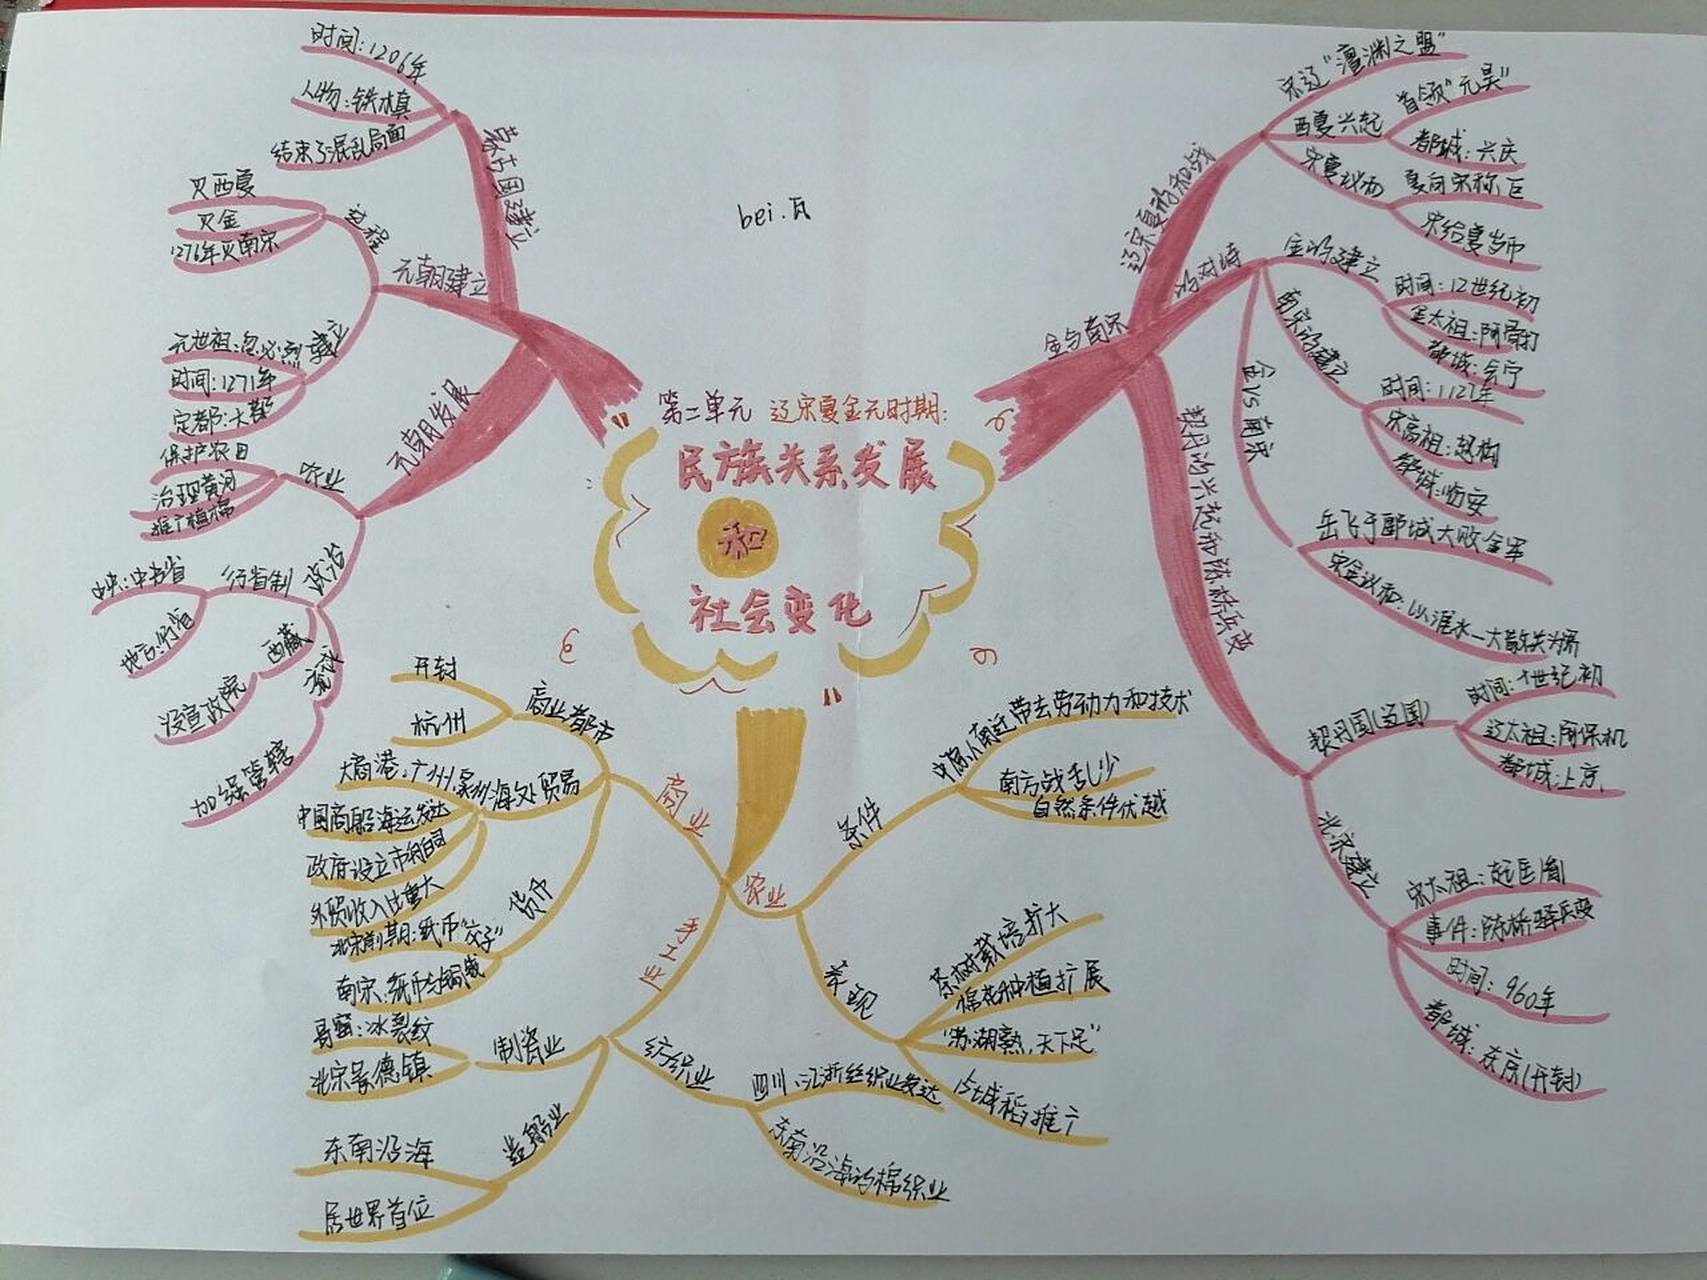 第二单元 辽宋夏金元时期:
民族关系发展
和
社会变化
bei.瓦
蒙古国建立
时间:1206年
人物:铁木真
结束了混乱局面
元朝建立
过程
灭西夏
灭金
1276年灭南宋
建立
元世祖:忽必烈
时间:1271年
定都:大都
元朝发展
农业
保护农田
治理黄河
推广植棉
政治
行省制
中央:中书省
地方:行省
西藏
设宣政院
加强管辖
辽宋夏的和战
宋辽"澶渊之盟"
西夏兴起
首领"元昊"
都城:兴庆
宋夏议和
夏向宋称臣
宋给夏岁币
金与南宋
的对峙
金的建立
时间:12世纪初
金太祖:阿骨打
都城:会宁
南宋的建立
时间:1127年
宋高祖:赵构
都城:临安
金vs南宋
岳飞于郾城大败金军
宋金议和:以淮水一大散关为界
契丹的兴起和陈桥兵变
契丹国(辽国)
时间:十世纪初
辽太祖:阿保机
都城:上京.
北宋建立
宋太祖:赵匡胤
事件:陈桥驿兵变
时间:960年
都城:东京(开封)
商业
商业都市
开封
杭州
海外贸易
大商港:广州,泉州
中国商船海运发达
政府设立市舶司
外贸收入比重大
货币
北宋前期:纸币"交子"
南宋:纸币与铜钱
手工业
制瓷业
哥窑:冰裂纹
北宋景德镇
造船业
东南沿海
居世界首位
纺织业
四川、江浙丝织业发达
东南沿海的棉织业
农业
条件
中原人南迁带去劳动力和技术
南方战乱少
自然条件优越
表现
茶树栽培扩大
棉花种植扩展
"苏湖熟,天下足"
占城稻推广